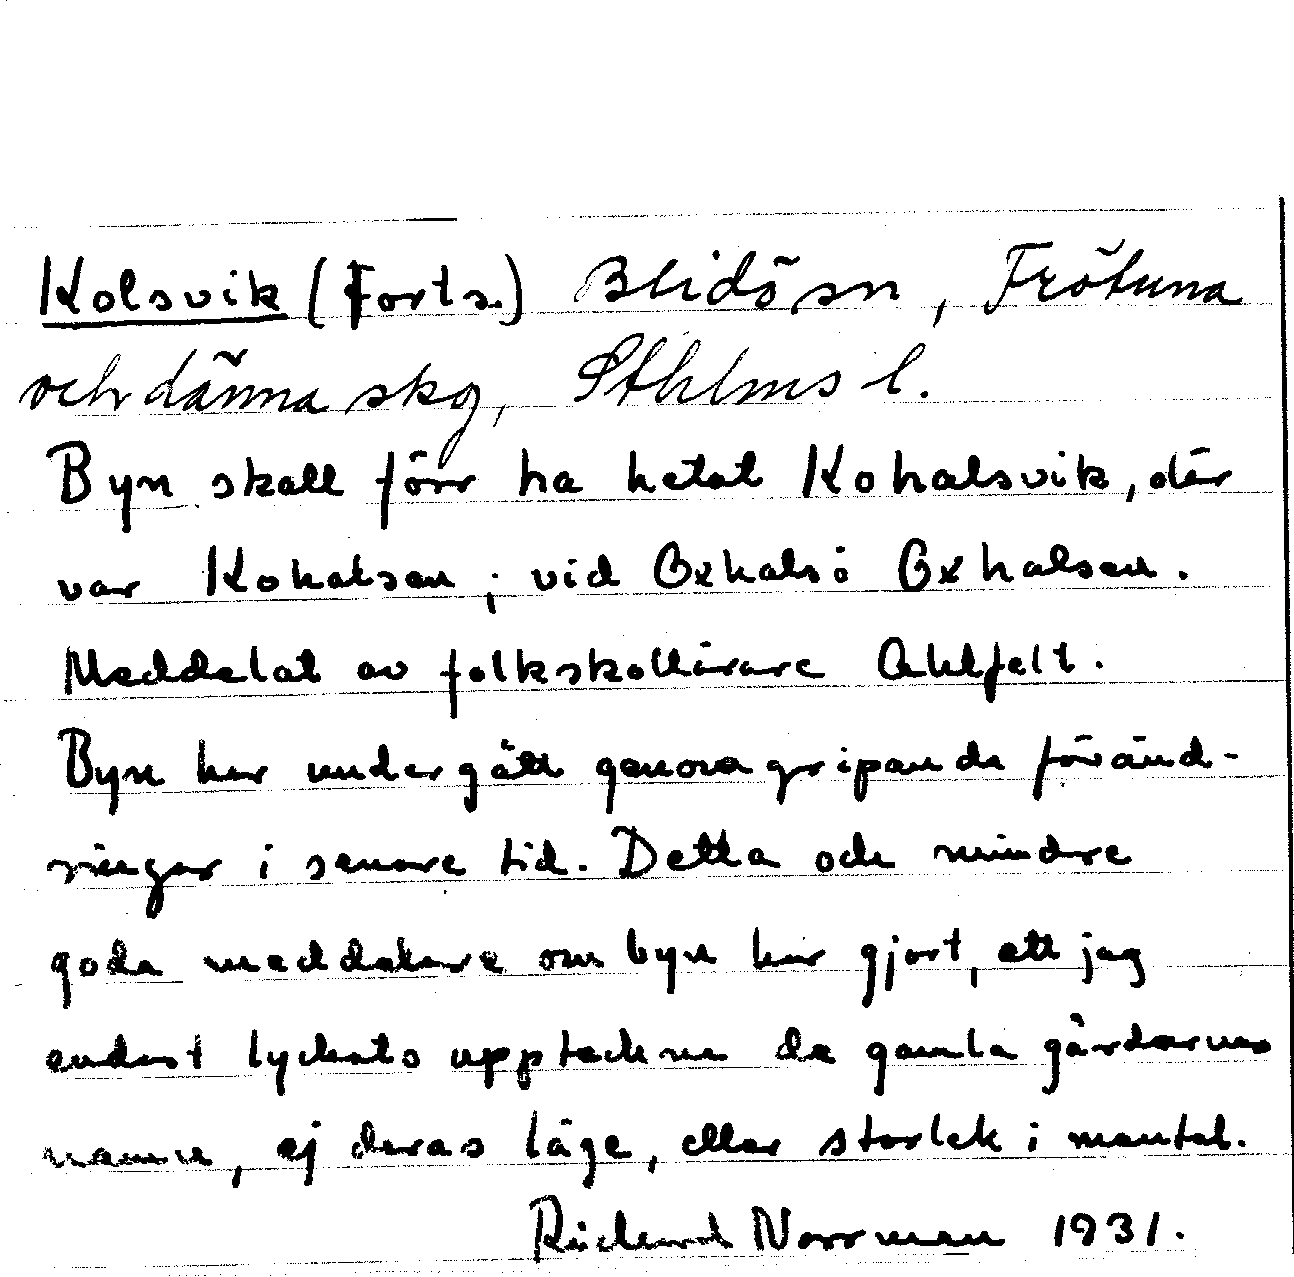 Kolsvik (Forts.) Blidö sn, Frötuna
och Länna skg, Sthlms l.
Byn skall förr ha hetat Kohalsvik, där
var Kohalsen, vid Oxhalsö Oxhalsen.
Meddelat av folkskollärare Ahlfelt.
Byn har undergått genomgripande föränd-
ringar i senare tid. Detta och mindre
goda meddelare om byn har gjort, att jag
endast lyckats uppteckna de gamla gårdarnas
namn, ej deras läge, eller storlek i mantal.
Richard Norrman 1931.